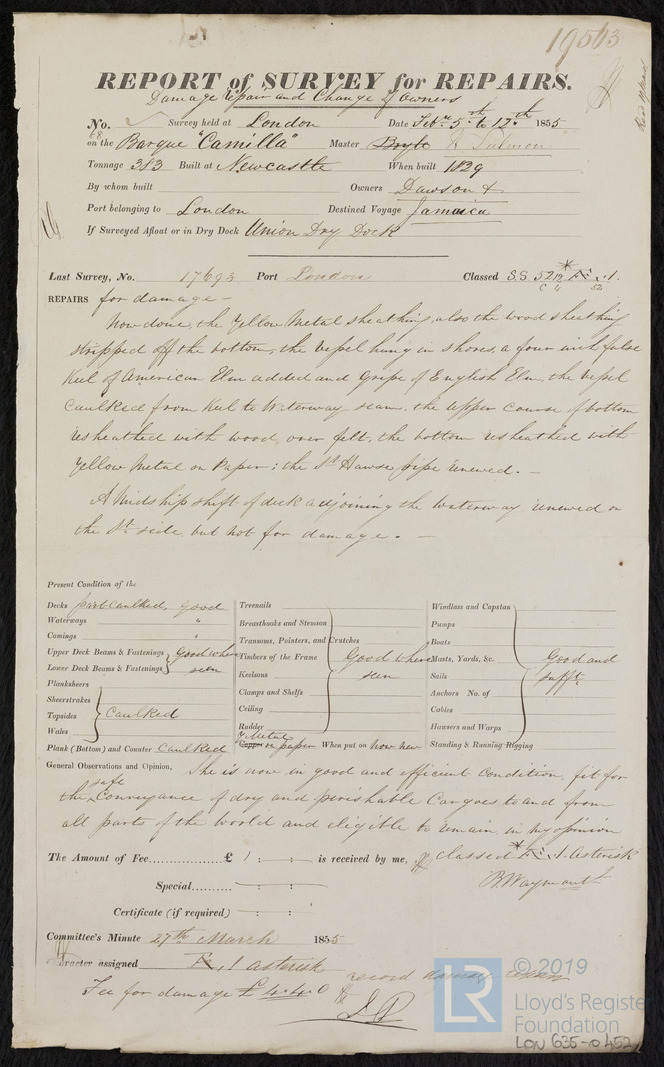 19563
REPORT of SURVEY for REPAIRS.
Damage Repair and Change of Owners
No. 68 Survey held at London Date Feby. 5th to 12th 1855
on the Barque "Camilla" Master Bryte Salmon
Tonnage 383 Built at Newcastle When built 1829
By whom built Owners Dawson &
Port belonging to London Destined Voyage Jamaica
If Surveyed Afloat or in Dry Dock Union Dry Dock
Last Survey, No. 17693 Port London Classed S.S. 52 * Æ .1.
REPAIRS for damage —
Now done, the Yellow Metal sheathing, also the wood sheathing
stripped off the bottom, the vessel hung in shores, a four inch false
Keel of American Elm added and Gripe of English Elm, the vessel
Caulked from Keel to Waterway seam, the upper course of bottom
resheathed with wood, over felt, the bottom resheathed with
Yellow Metal on Paper; the St. Hawse pipe renewed. —
A Midship shift of deck adjoining the waterway renewed on
the St. side but not for damage. —
Present Condition of the
Decks part Caulked, good
Waterways "
Comings "
Upper Deck Beams & Fastenings
Lower Deck Beams & Fastenings
Good where seen
Planksheers
Sheerstrakes
Topsides
Wales
Caulked
Plank (Bottom) and Counter Caulked
Treenails
Breasthooks and Stemson
Transoms, Pointers, and Crutches
Timbers of the Frame
Keelsons
Clamps and Shelfs
Ceiling
Rudder
Good where seen
Y. Metal
Copper on paper When put on now new
Windlass and Capstan
Pumps
Boats
Masts, Yards, &c.
Sails
Anchors No. of
Cables
Hawsers and Warps
Standing & Running Rigging
Good and sufft.
General Observations and Opinion, She is now in good and efficient Condition, fit for
the safe Conveyance of dry and perishable Cargoes to and from
all parts of the World and eligible to remain in my opinion
classed * Æ .1. asterisk
The Amount of Fee............£ 1 : : is received by me,
B. Waymouth
Special.......... : :
Certificate (if required) : :
Committee's Minute 27th March 1855
Character assigned Æ .1 asterisk
Fee for damage £4.4.0
© 2019
LR
Lloyd's Register
Foundation
LON 635-0452